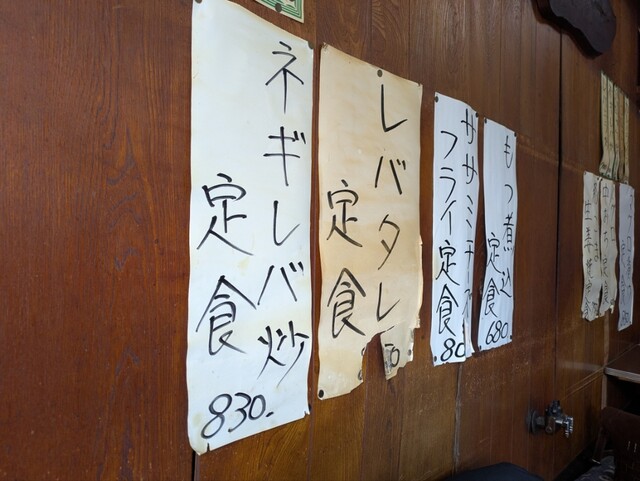 ネギレバ炒
定食
830.
レバタレ
定食
ササミチ
フライ定食
80
もつ煮込
定食
680